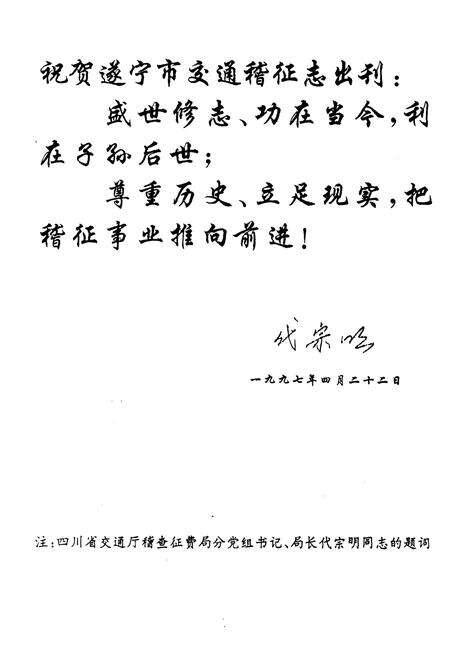 祝贺遂宁市交通稽征志出刊：
盛世修志、功在当今，利
在子孙后世；
尊重历史、立足现实，把
稽征事业推向前进！
代宗明
一九九七年四月二十二日
注：四川省交通厅稽查征费局分党组书记、局长代宗明同志的题词